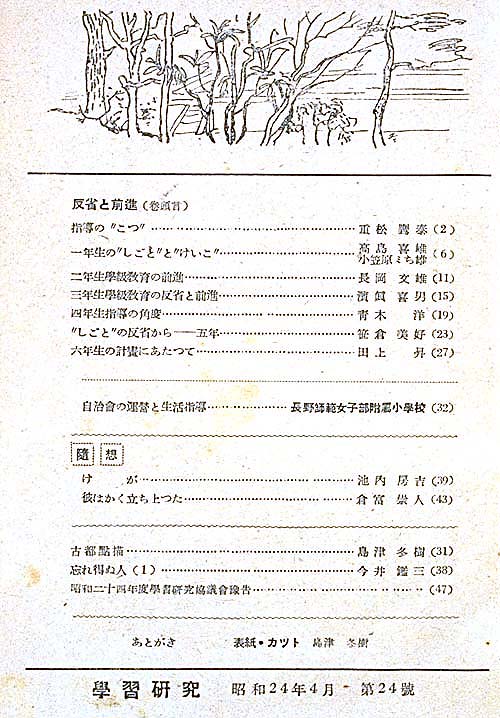 反省と前進(卷頭言)
指導の"こつ"……重松鷹泰(2)
一年生の"しごと"と"けいこ"……高島喜雄 小笠原みち雄(6)
二年生學級敎育の前進……長岡文雄(11)
三年生學級敎育の反省と前進……喜男(15)
四年生指導の角度……青木洋(19)
"しごと"の反省から——五年……笹倉美好(23)
六年生の計畫にあたつて……田上昇(27)
自治會の運營と生活指導……長野師範女子部附屬小學校(32)
隨想
けが……池内房吉(39)
彼はかく立ち上つた……倉富崇人(43)
古都點描……島津冬樹(31)
忘れ得ぬ人(1)……今井鑑三(38)
昭和二十四年度學習硏究協議會豫吿……(47)
あとがき 表紙・カツト 島津冬樹
學習硏究 昭和24年4月 第24號